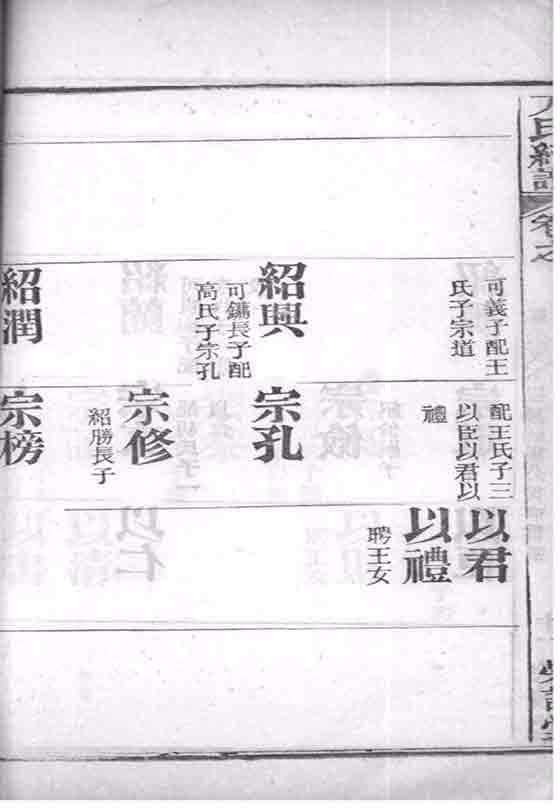 可義子配王
氏子宗道
紹興
可鏞長子配
高氏子宗孔
紹潤
配王氏子三
以臣以君以
禮
宗孔
宗修
紹勝長子
宗榜
以君
以禮
聘王女